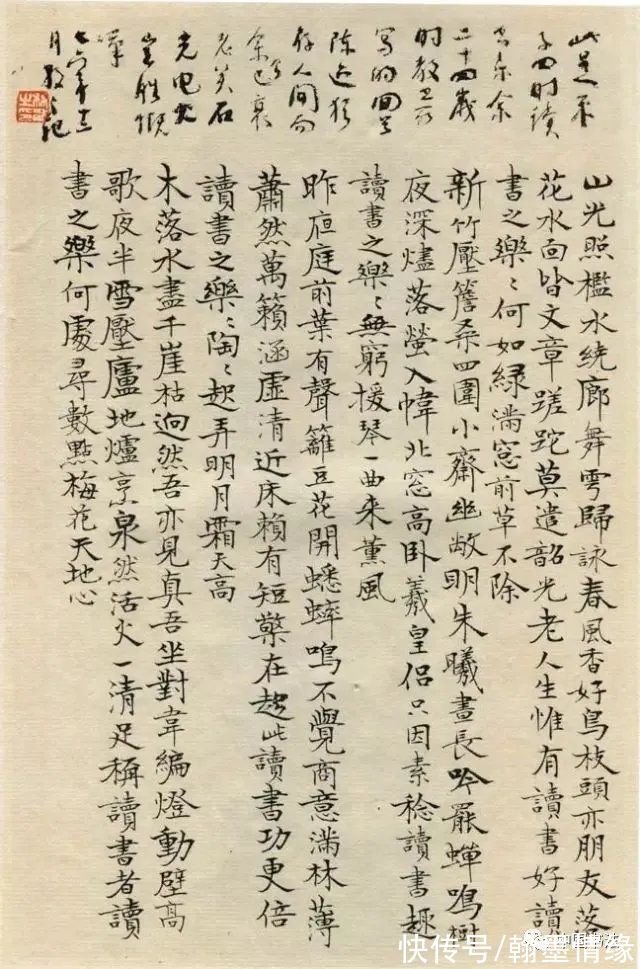 此是朱
子四时读
书乐余
二十四岁
时教
写的回首
陈迹犹
存人间而
余已衰
老矣石
光电火
岂胜慨
叹
七六年十二
月散之记
山光照檻水繞廊舞雩歸詠春風香好鳥枝頭亦朋友落
花水面皆文章蹉跎莫遣韶光老人生惟有讀書好讀
書之樂〻何如綠滿窓前草不除
新竹壓簷桑四圍小齋幽敞明朱曦晝長吟罷蟬鳴樹
夜深燼落螢入幃北窓高卧羲皇侣只因素稔讀書趣
讀書之樂〻無窮援琴一曲来薰風
昨夜庭前葉有聲籬豆花開蟋蟀鳴不覺商意滿林薄
蕭然萬籟涵虛清近床賴有短檠在趁此讀書功更倍
讀書之樂〻陶〻起弄明月霜天高
木落水盡千崖枯迥然吾亦見真吾坐對韋編燈動壁高
歌夜半雪壓廬地爐烹泉然活火一清足稱讀書者讀
書之樂何處尋數點梅花天地心
快传号/翰墨情缘